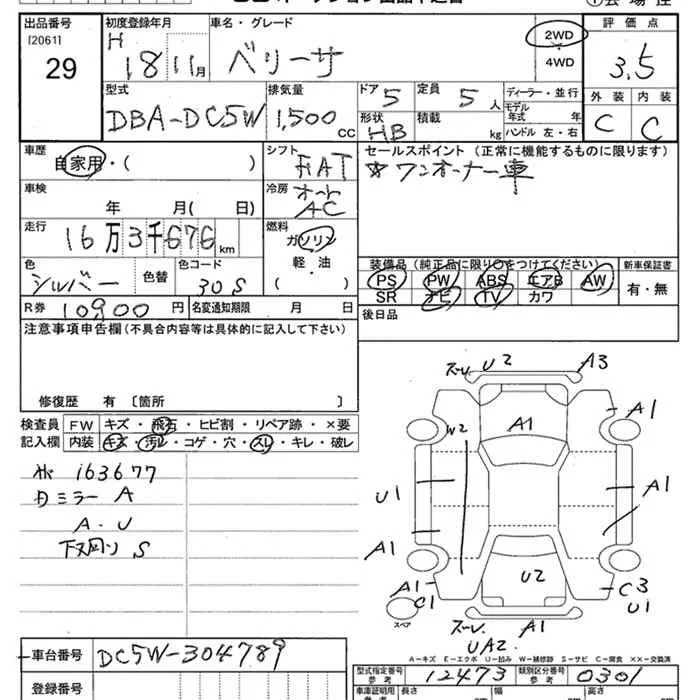 出品番号 初度登録年月 車名・グレード 2WD 4WD 評価点
[2061] 29 H 18 11月 ベリーサ 3.5
型式 排気量 ドア 定員 ディーラー・並行 外装 内装
DBA-DC5W 1,500 CC 5 5人 モデル年式 年 C C
形状 HB 積載 kg ハンドル 左・右
車歴 自家用・( ) シフト FAT セールスポイント(正常に機能するものに限ります)
☆ワンオーナー車
車検 年 月( 日) 冷房 オート AC
走行 16万3千676km 燃料 ガソリン 軽・油 ( )
色 シルバー 色替 色コード 30S
装備品(純正品に限り○をつけてください) 新車保証書
PS PW ABS エアB AW 有・無
SR ナビ TV カワ
R券 10900円 名変通知期限 月 日 後日品
注意事項申告欄(不具合内容等は具体的に記入して下さい)
修復歴 有〔箇所 〕
検査員 FW キズ・飛石・ヒビ割・リペア跡・×要
記入欄 内装 キズ・汚レ・コゲ・穴・スレ・キレ・破レ
163677
ミラー A
A・U
下回り S
スレ U2 A3
A1 A1
W2
U1 A1
A1
A1 C1 U2 C3 U1
スペア
スレ A1
UA2
A-キズ E-エクボ U-凹み W-補修跡 S-サビ C-腐食 ××-交換済
車台番号 DC5W-304789
型式指定番号 参考 12473 類別区分番号 参考 0301
登録番号 車庫証明用 長さ 幅 高